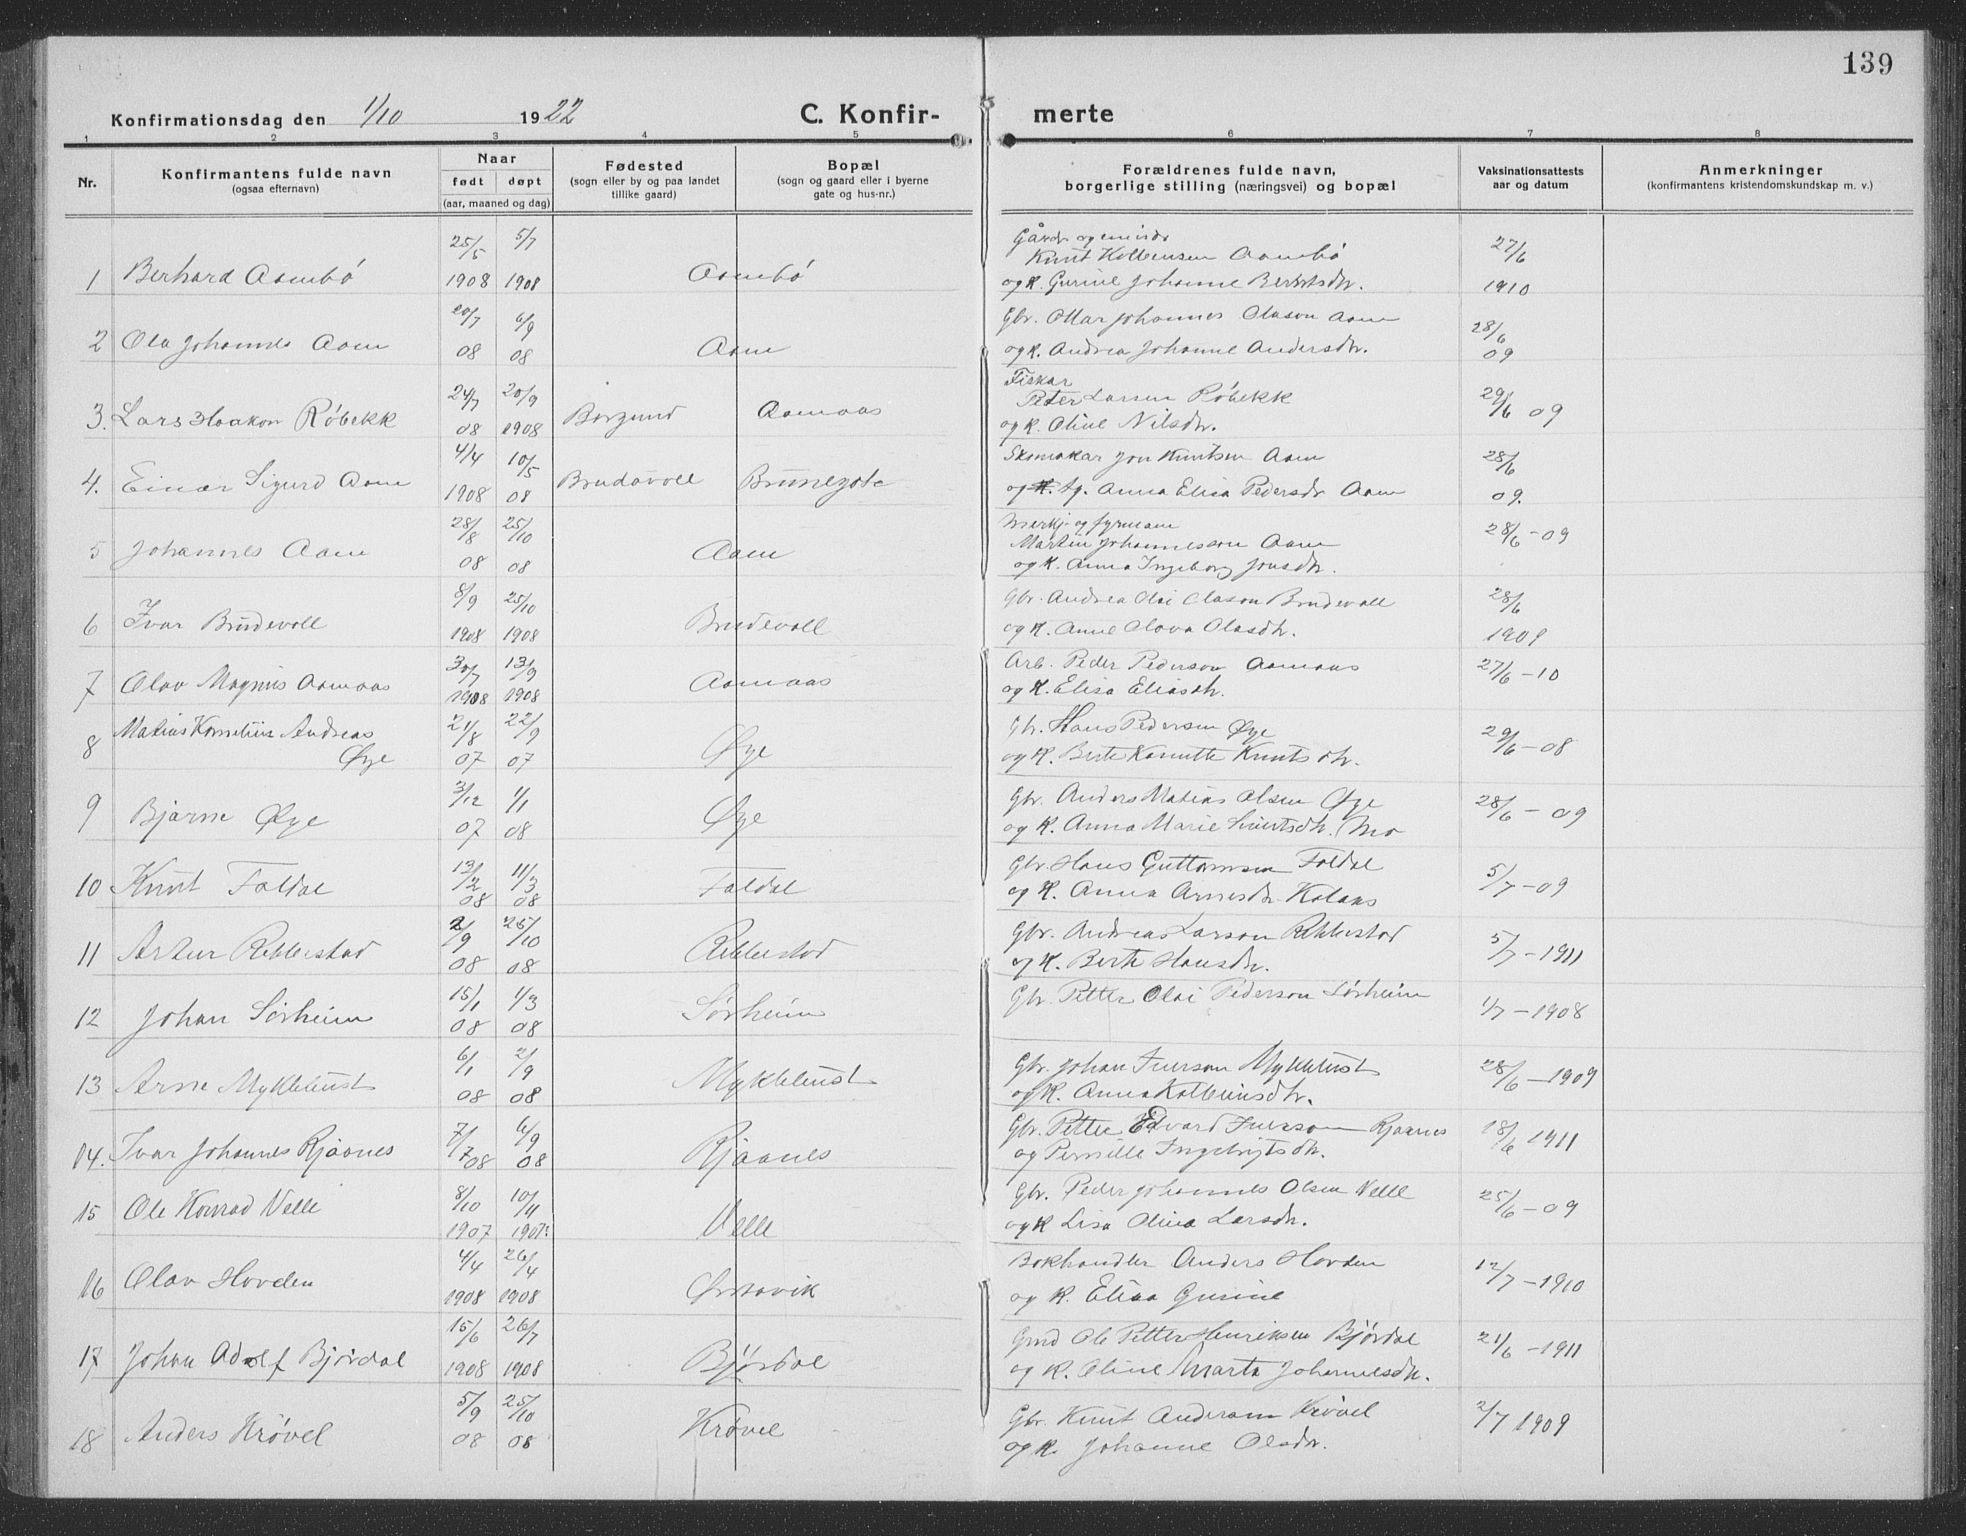 139
Konfirmationsdag den 1/10 1922
C. Konfir-
merte
1 2 3 4 5 6 7 8
Nr.
Konfirmantens fulde navn
(ogsaa efternavn)
Naar
født døpt
(aar, maaned og dag)
Fødested
(sogn eller by og paa landet
tillike gaard)
Bopæl
(sogn og gaard eller i byerne
gate og hus-nr.)
Forældrenes fulde navn,
borgerlige stilling (næringsvei) og bopæl
Vaksinationsattests
aar og datum
Anmerkninger
(konfirmantens kristendomskundskap m. v.)
25/5 5/7 Gårdbr og 27/6
1 Berhard Aambø 1908 1908 Aambø Knut Kolbensen Aambø
og K. Gurine Johanne Berntsdtr. 1910
20/7 6/9 Gbr. Ottar Johannes Olason Aam 28/6
2 Ola Johannes Aam 08 08 Aam og K. Andrea Johanne Andersdtr. 09
24/7 20/9 Fiskar
Peter Larsen Røbekk 29/6 09
3. Lars Haakon Røbekk 08 1908 Borgund Aamaas og K. Oline Nilsdtr.
4/4 10/5 Skomakar Jon Knutsen Aam 28/6
4. Einar Sigurd Aam 1908 08 Brudavoll Brunegota og Anna Elisa Pedersdr Aam 09.
28/8 25/10 og fyrmann
5 Johannes Aam 08 08 Aam Martin Johannesson Aam 28/6-09
og K. Anna Ingeborg Jonsdtr.
8/9 25/10 Gbr. Andrea Olai Olason Brudevoll 28/6
6 Ivar Brudevoll 1908 1908 Brudevoll og K. Anne Olava Olasdtr. 1909
30/7 13/9 Arb. Peder Pederson Aamaas 27/6-10
7 Olav Magnus Aamaas 1908 1908 Aamaas og K. Elisa Eliasdtr.
Matias Kornelius Andreas 21/8 22/9 Gbr. Hans Pedersen Øye 29/6-08
8 Øye 07 07 Øye og K. Berte Kanutte Knutsdtr.
3/12 1/1 Gbr. Anders Matias Olsen Øye 28/6-09
9 Bjarne Øye 07 08 Øye og K. Anna Marie Sivertsdtr. Mo
13/2 11/3 Gbr. Hans Guttormsen Foldal 5/7-09
10 Knut Foldal 08 08 Foldal og K. Anna Arnesdtr. Kolaas
2/9 25/10 Gbr. Andreas Larson Rebbestad 5/7-1911
11 Artur Rebbestad 08 08 Rebbestad og K. Berte Hansdtr.
15/1 1/3 Gbr. Petter Olai Pederson Sørheim 1/7-1908
12 Johan Sørheim 08 08 Sørheim
6/1 2/9 Gbr. Johan Iverson Myklebust 28/6-1909
13 Arne Myklebust 08 08 Myklebust og K. Anna Kolbeinsdtr.
7/7 08 6/9 08 Gbr. Petter Edvard Iversson Rjaanes 18/6 1911
14. Ivar Johannes Rjaanes Rjaanes og Pernille Ingebrigtsdtr.
8/10 10/11 Gbr. Peder Johannes Olsen Velle 25/6-09
15 Ole Konrad Velle 1907 1907 Velle og K Lisa Olina Larsdtr.
4/4 26/4 Bokhandler Anders Hovden 12/7-1910
16 Olav Hovden 1908 1908 Ørstavik og K. Elisa Gurine
15/6 26/7 Gmd Ole Petter Henriksen Bjørdal 21/6-1911
17 Johan Adolf Bjørdal 1908 1908 Bjørdal og K. Oline Marta Johannesdtr.
5/9 25/10 Gbr. Knut Anderson Krøvel 2/7 1909
18 Anders Krøvel 08 08 Krøvel og K. Johanne Olsdtr.